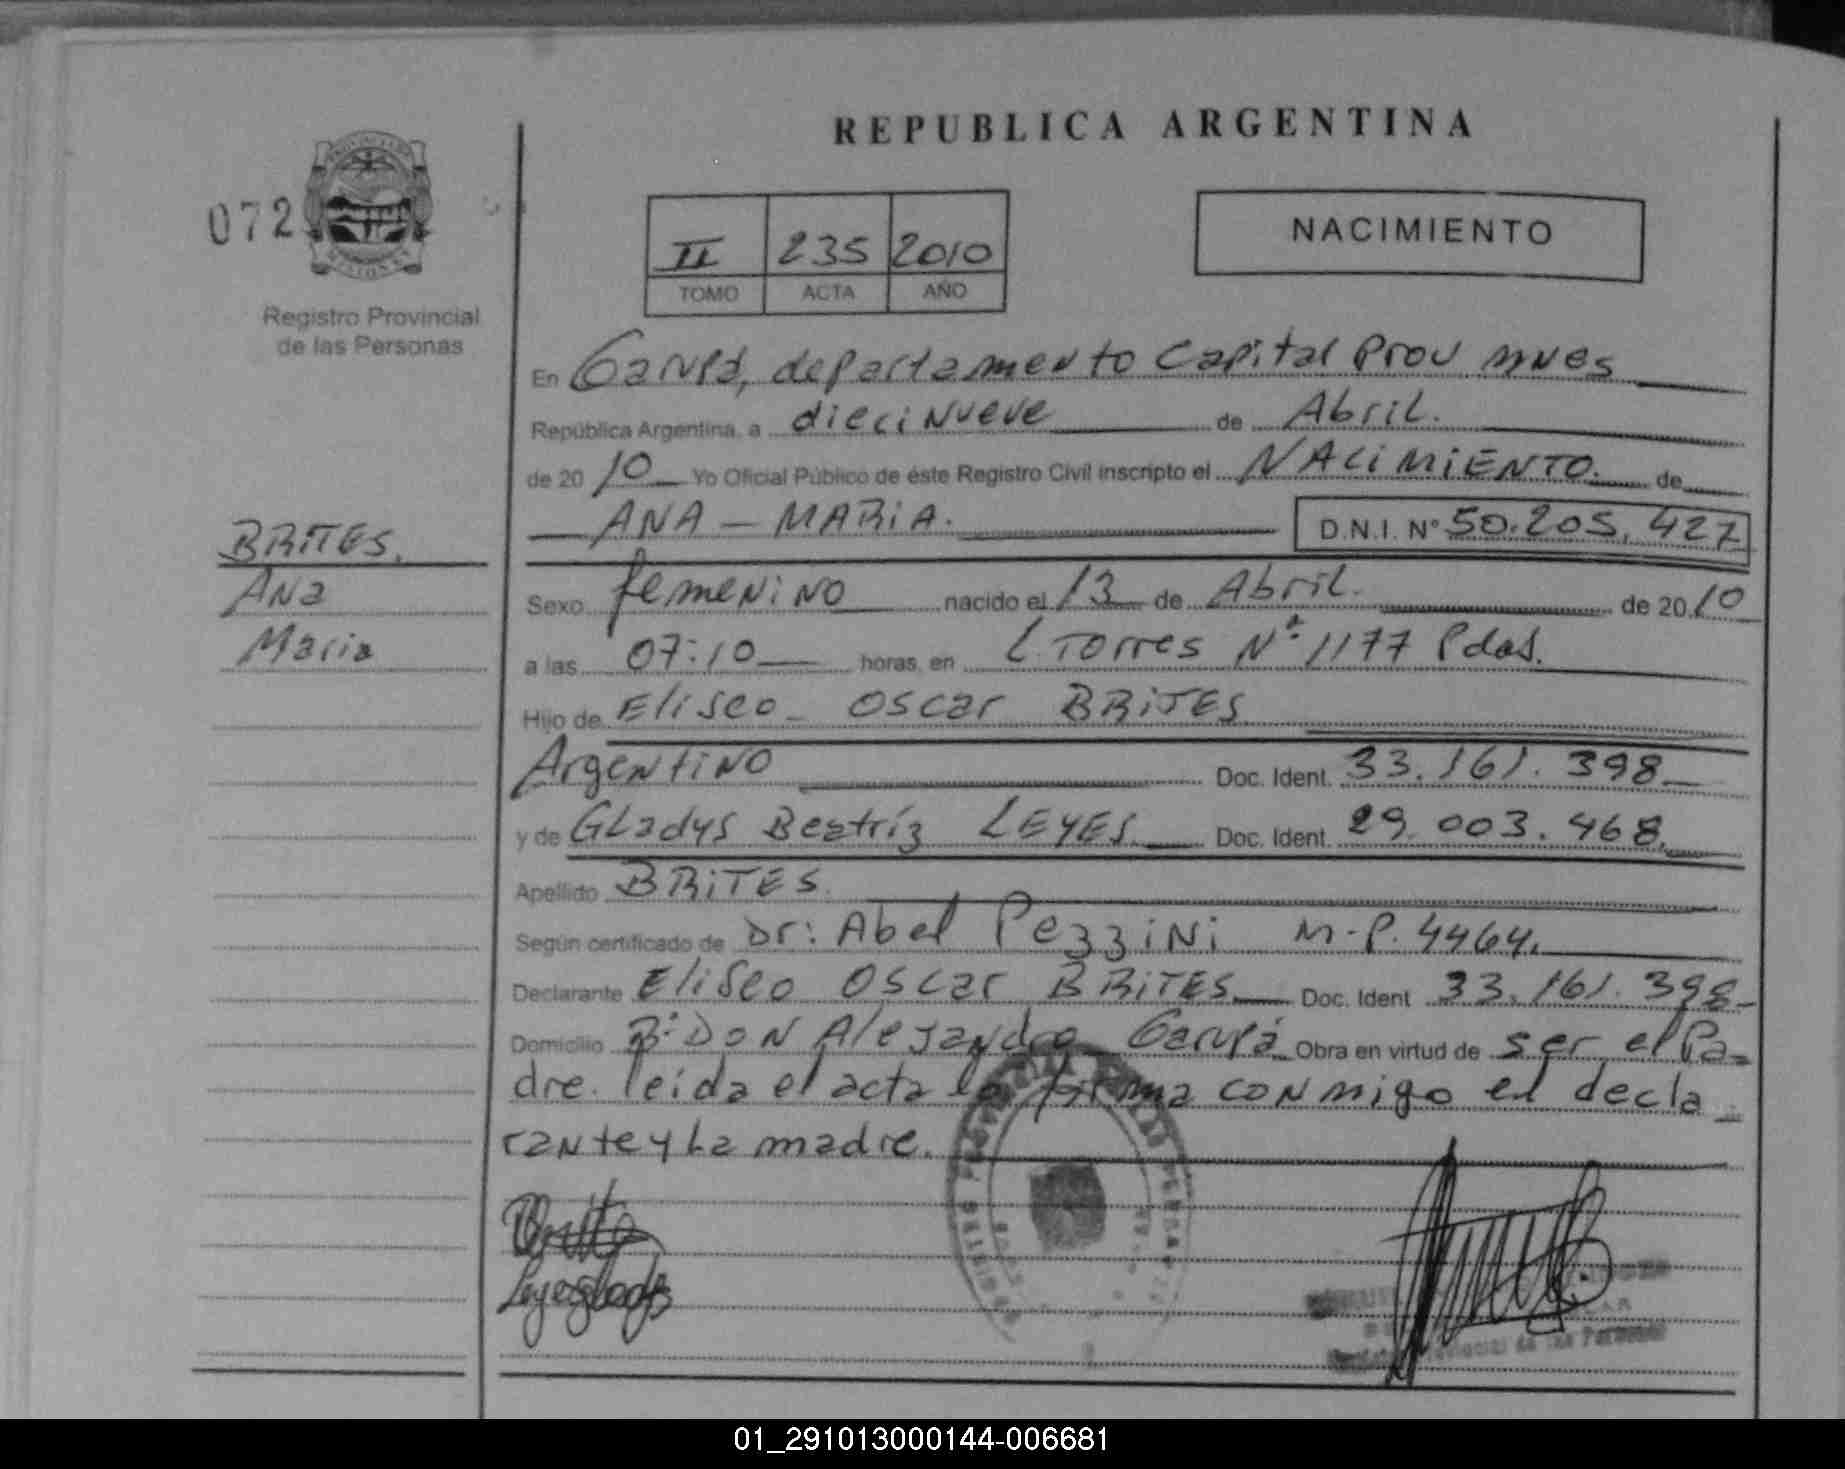 REPUBLICA ARGENTINA
072
II 235 2010
TOMO ACTA AÑO
NACIMIENTO
Registro Provincial
de las Personas
BRITES.
Ana
Maria
En Garupá, departamento Capital Prov mnes
República Argentina, a diecinueve de Abril.
de 2010 Yo Oficial Público de éste Registro Civil inscripto el NACIMIENTO. de
ANA - MARIA. D.N.I. N° 50.205.427
Sexo femenino nacido el 13 de Abril. de 2010
a las 07:10 horas, en L. Torres N° 1177 Pdas.
Hijo de Eliseo Oscar BRITES
Argentino Doc. Ident. 33.161.398
y de Gladys Beatríz LEYES Doc. Ident. 29.003.468.
Apellido BRITES.
Según certificado de Dr: Abel Pezzini M-P. 4464.
Declarante Eliseo Oscar BRITES Doc. Ident 33.161.398-
Domicilio B° Don Alejandro Garupá Obra en virtud de ser el Pa-
dre. leida el acta la firma conmigo el decla
rante y La madre.
01_291013000144-006681